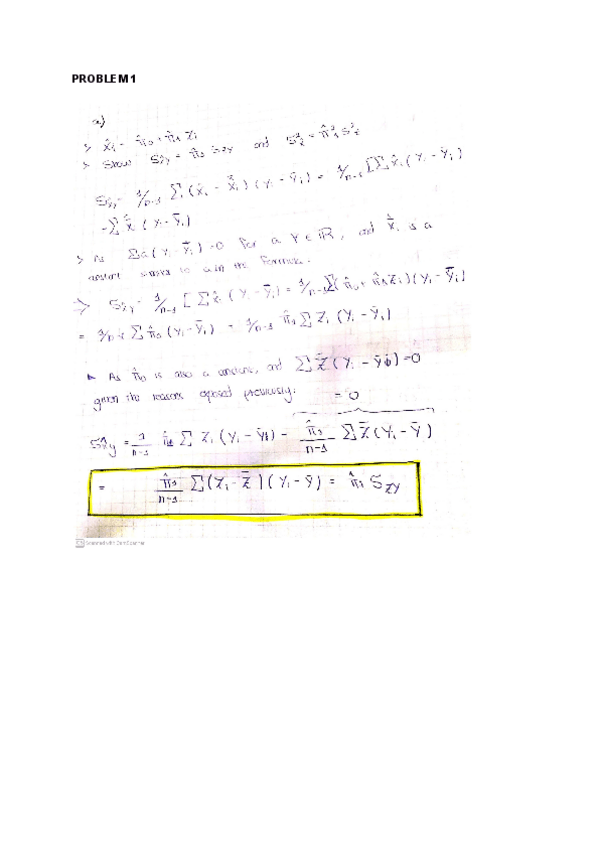 PROBLEM 1
a)
> x̂ᵢ = π̂₀ + π̂₁ zᵢ
> Show Sx̂y = π̂₁ Szy and S²x̂ = π̂₁² S²z
Sx̂y = 1/n-1 Σ (x̂ᵢ - x̂̄ᵢ) (yᵢ - ȳᵢ) = 1/n-1 [Σ x̂ᵢ (yᵢ - ȳᵢ)
- Σ x̂̄ (yᵢ - ȳᵢ)]
> As Σa (yᵢ - ȳᵢ) = 0 for a ∀ ∈ ℝ, and x̂̄ᵢ is a
in the formula.
=> Sx̂y = 1/n-1 [Σ x̂ᵢ (yᵢ - ȳᵢ) = 1/n-1 Σ(π̂₀ + π̂₁ zᵢ) (yᵢ - ȳᵢ)
= 1/n-1 Σ π̂₀ (yᵢ - ȳᵢ) = 1/n-1 π̂₁ Σ zᵢ (yᵢ - ȳᵢ)
As π̂₀ is also a constant, and Σ z̄ (yᵢ - ȳ) = 0
given the reasons previously:
= 0
Sx̂y = 1/n-1 π̂₁ Σ zᵢ (yᵢ - ȳᵢ) - π̂₁/n-1 Σ z̄ (yᵢ - ȳ)
= π̂₁/n-1 Σ (zᵢ - z̄) (yᵢ - ȳ) = π̂₁ Szy
CS Scanned with CamScanner